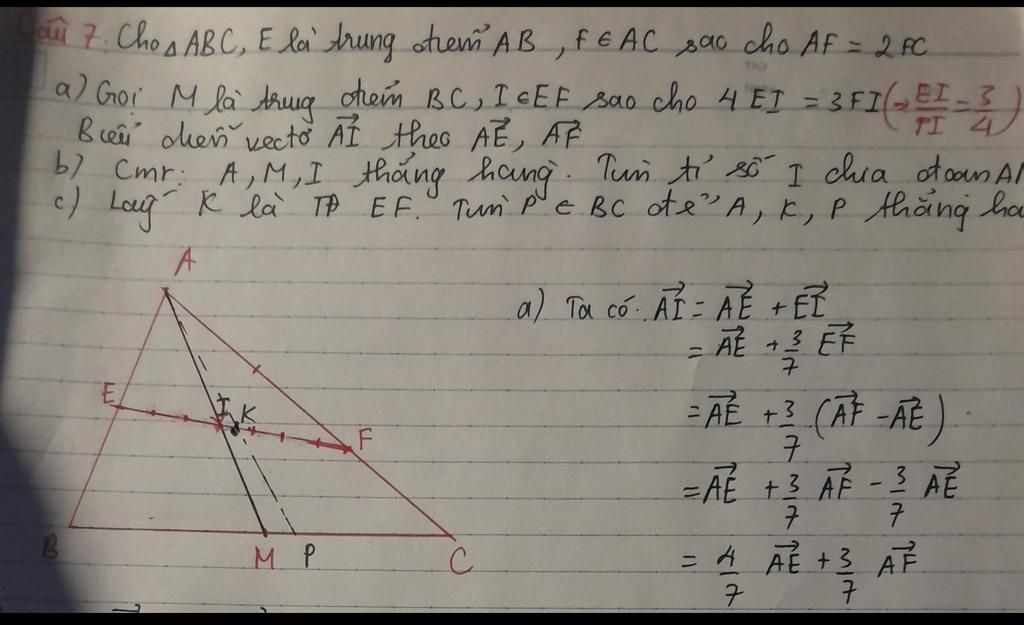 Câu 7. Cho △ABC, E là trung điểm AB, F ∈ AC sao cho AF = 2FC
a) Gọi M là trung điểm BC, I ∈ EF sao cho 4EI = 3FI (→ EI/FI = 3/4)
Biểu diễn vectơ AI⃗ theo AE⃗, AF⃗
b) Cmr: A, M, I thẳng hàng. Tìm tỉ số I chia đoạn
c) Lấy K là TĐ EF. Tìm P ∈ BC để A, K, P thẳng
A
a) Ta có: AI⃗ = AE⃗ + EI⃗
= AE⃗ + 3/7 EF⃗
E I K F
= AE⃗ + 3/7 (AF⃗ - AE⃗)
= AE⃗ + 3/7 AF⃗ - 3/7 AE⃗
B M P C
= 4/7 AE⃗ + 3/7 AF⃗